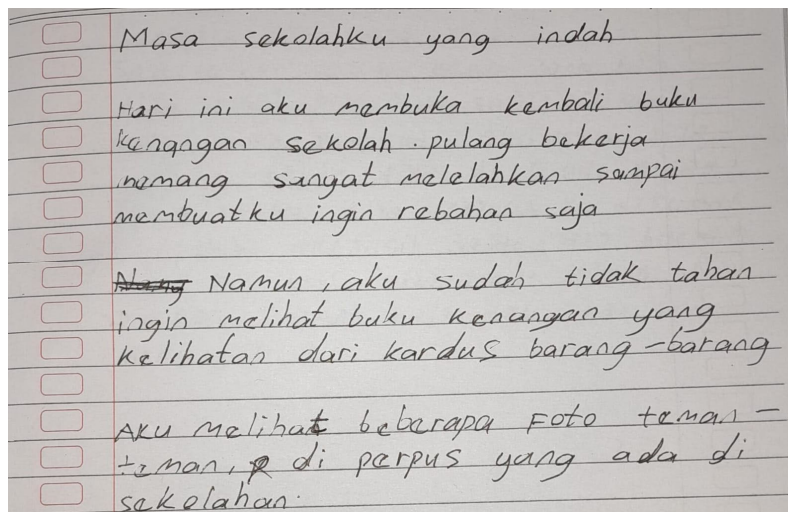 Masa sekolahku yang indah
Hari ini aku membuka kembali buku
kenangan sekolah. pulang bekerja
memang sangat melelahkan sampai
membuatku ingin rebahan saja
Namun, aku sudah tidak tahan
ingin melihat buku kenangan yang
kelihatan dari kardus barang-barang
Aku melihat beberapa Foto teman-
teman, di perpus yang ada di
sekolahan.